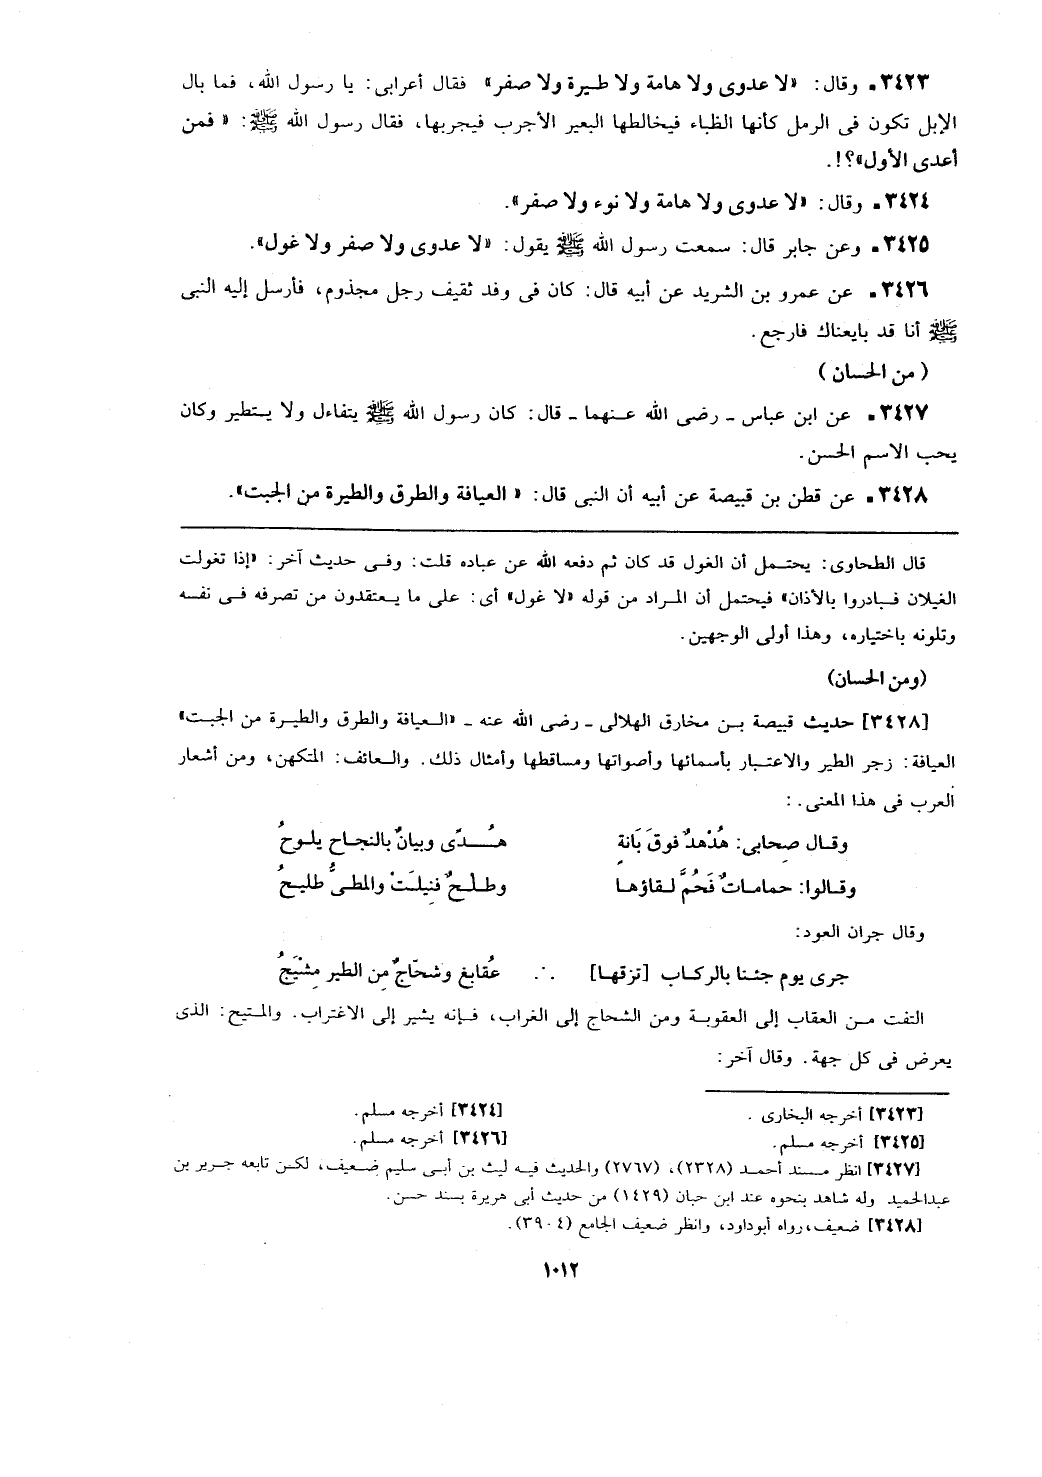 ٣٤٢٣. وقال: «لا عدوى ولا هامة ولا طيرة ولا صفر» فقال أعرابى: يا رسول الله، فما بال
الإبل تكون فى الرمل كأنها الظباء فيخالطها البعير الأجرب فيجربها، فقال رسول الله ﷺ: « فمن
أعدى الأول»؟!.
٣٤٢٤. وقال: «لا عدوى ولا هامة ولا نوء ولا صفر».
٣٤٢٥. وعن جابر قال: سمعت رسول الله ﷺ يقول: «لا عدوى ولا صفر ولا غول».
٣٤٢٦. عن عمرو بن الشريد عن أبيه قال: كان فى وفد ثقيف رجل مجذوم، فأرسل إليه النبى
ﷺ أنا قد بايعناك فارجع.
( من الحسان )
٣٤٢٧. عن ابن عباس ـ رضى الله عنهما ـ قال: كان رسول الله ﷺ يتفاءل ولا يتطير وكان
يحب الاسم الحسن.
٣٤٢٨. عن قطن بن قبيصة عن أبيه أن النبى قال: « العيافة والطرق والطيرة من الجبت».
قال الطحاوى: يحتمل أن الغول قد كان ثم دفعه الله عن عباده قلت: وفى حديث آخر: «إذا تغولت
الغيلان فبادروا بالأذان» فيحتمل أن المراد من قوله «لا غول» أى: على ما يعتقدون من تصرفه فى نفسه
وتلونه باختياره، وهذا أولى الوجهين.
(ومن الحسان)
[٣٤٢٨] حديث قبيصة بن مخارق الهلالى ـ رضى الله عنه ـ «العيافة والطرق والطيرة من الجبت»
العيافة: زجر الطير والاعتبار بأسمائها وأصواتها ومساقطها وأمثال ذلك. والعائف: المتكهن، ومن أشعار
العرب فى هذا المعنى. :
وقال صحابى: هُدْهدٌ فوقَ بَانة هُدّى وبيانٌ بالنجاح يلوحُ
وقالوا: حماماتٌ فَحُمَّ لقاؤها وطلْحٌ فنيلَتْ والمطىُّ طليحُ
وقال جران العود:
جرى يوم جئنا بالركاب [تزقها] ∴ عُقابغ وشحّاجٌ مِن الطير مِتْيَحُ
التفت من العقاب إلى العقوبة ومن الشحاج إلى الغراب، فإنه يشير إلى الاغتراب. والمتيح: الذى
يعرض فى كل جهة. وقال آخر:
[٣٤٢٣] أخرجه البخارى . [٣٤٢٤] أخرجه مسلم.
[٣٤٢٥] أخرجه مسلم. [٣٤٢٦] أخرجه مسلم.
[٣٤٢٧] انظر مسند أحمد (٢٣٢٨)، (٢٧٦٧) والحديث فيه ليث بن أبى سليم ضعيف، لكن تابعه جرير بن
عبدالحميد وله شاهد بنحوه عند ابن حبان (١٤٢٩) من حديث أبى هريرة بسند حسن.
[٣٤٢٨] ضعيف،رواه أبوداود، وانظر ضعيف الجامع (٣٩٠٤).
١٠١٢